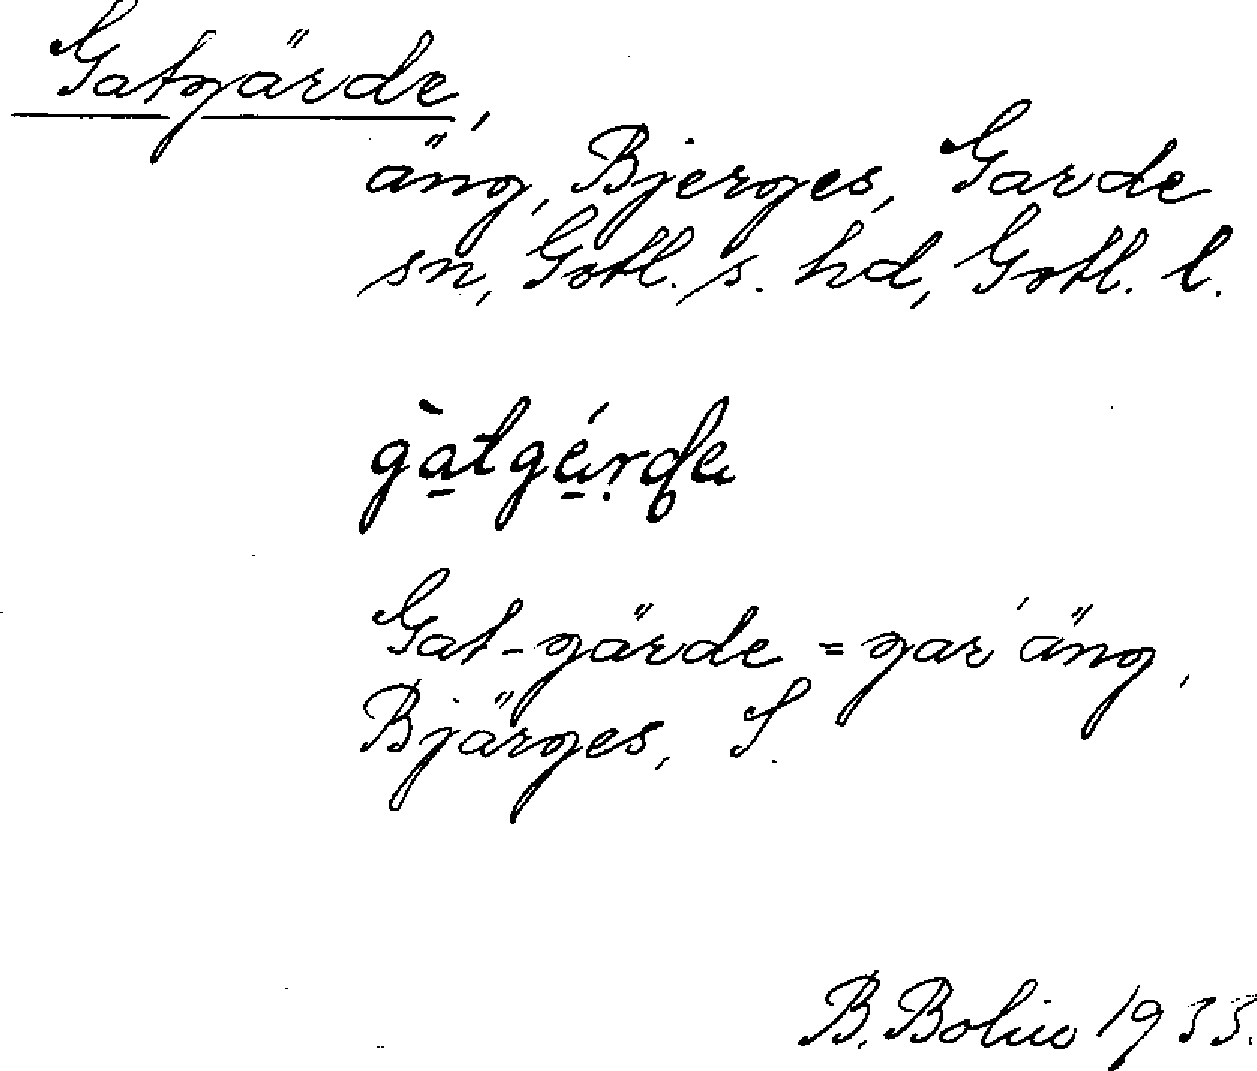 Gatgärde,
äng, Bjerges, Garde
sn, Gotl. s. hd, Gotl. l.
Gat-gärde = gar äng,
Bjärges, S.
B. Bolin 1933.